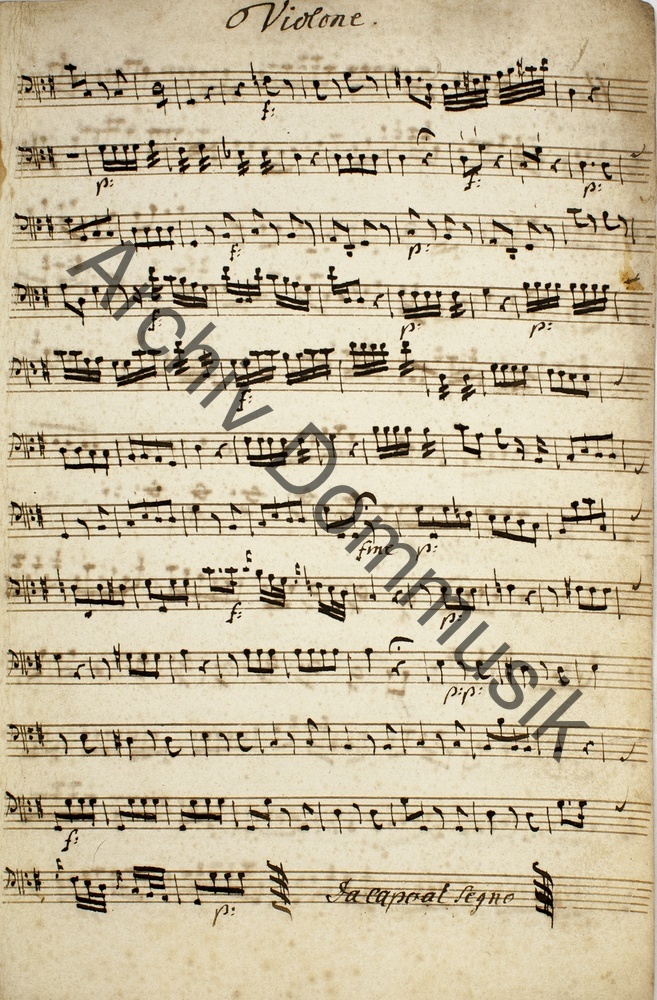 Violone.
f:
p: f: p:
f: p:
f: p: p:
f:
fine p:
f: p:
p:p:
f:
p: Da capo al Segno
Archiv Dommusik